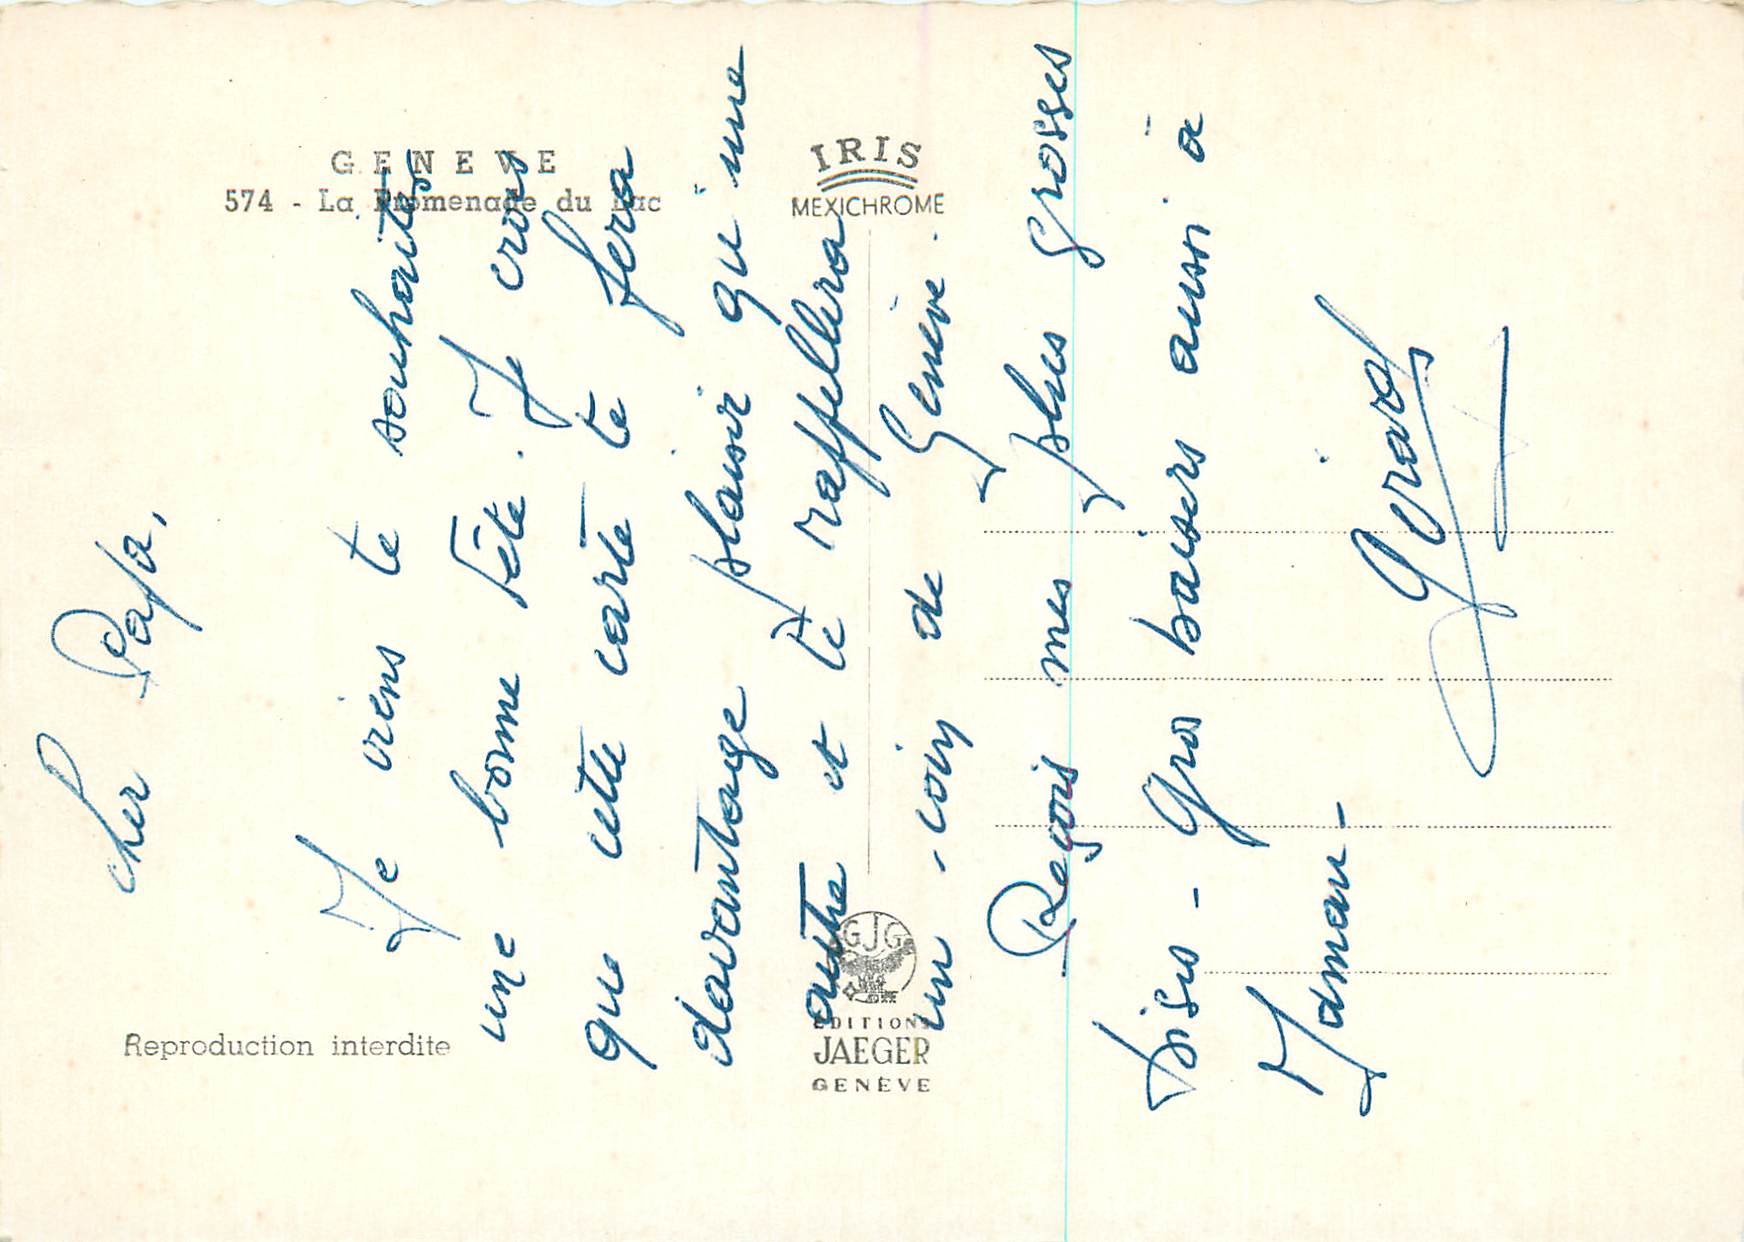 GENEVE
574 - La Promenade du Lac
IRIS
MEXICHROME
Reproduction interdite
GJG
EDITIONS
JAEGER
GENÈVE
Cher Papa,
Je viens te souhaiter
une bonne fête. Je crois
que cette carte te fera
davantage plaisir qu'une
autre et te rappellera
un coin de Genève.
Reçois mes plus grosses
bises - Gros baisers aussi à
Maman -
Gérard